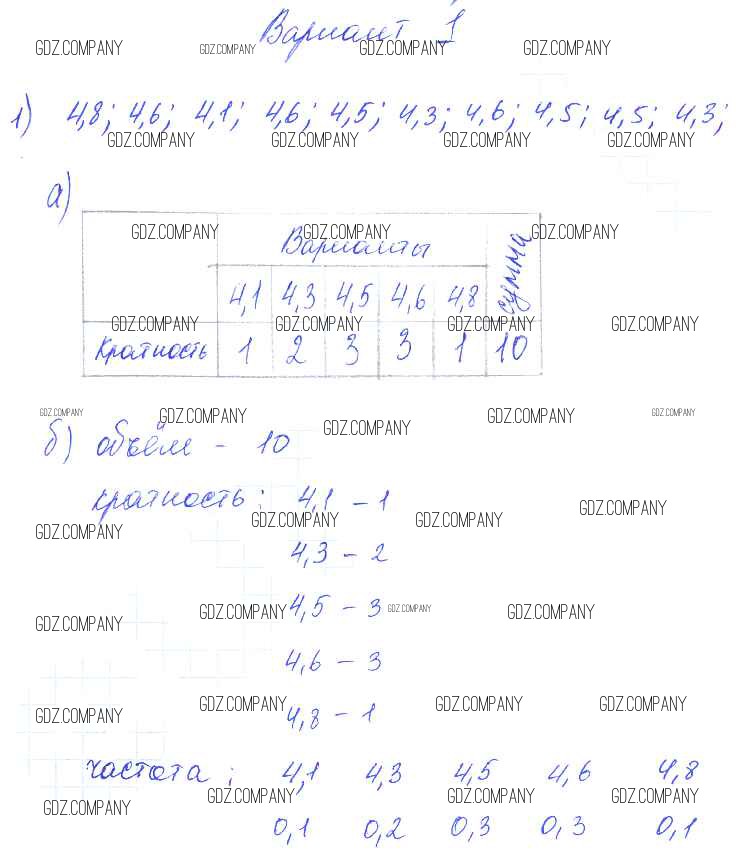 Вариант 1
GDZ.COMPANY GDZ.COMPANY GDZ.COMPANY GDZ.COMPANY
1) 4,8; 4,6; 4,1; 4,6; 4,5; 4,3; 4,6; 4,5; 4,5; 4,3;
GDZ.COMPANY GDZ.COMPANY GDZ.COMPANY GDZ.COMPANY
а)
GDZ.COMPANY GDZ.COMPANY GDZ.COMPANY
Варианты сумма
4,1 4,3 4,5 4,6 4,8
GDZ.COMPANY GDZ.COMPANY GDZ.COMPANY GDZ.COMPANY
Кратность 1 2 3 3 1 10
GDZ.COMPANY GDZ.COMPANY GDZ.COMPANY GDZ.COMPANY GDZ.COMPANY
б) объём - 10
кратность: 4,1 - 1
GDZ.COMPANY GDZ.COMPANY GDZ.COMPANY GDZ.COMPANY
4,3 - 2
4,5 - 3
GDZ.COMPANY GDZ.COMPANY GDZ.COMPANY GDZ.COMPANY
4,6 - 3
GDZ.COMPANY GDZ.COMPANY GDZ.COMPANY GDZ.COMPANY
4,8 - 1
частота: 4,1 4,3 4,5 4,6 4,8
GDZ.COMPANY GDZ.COMPANY GDZ.COMPANY GDZ.COMPANY
0,1 0,2 0,3 0,3 0,1